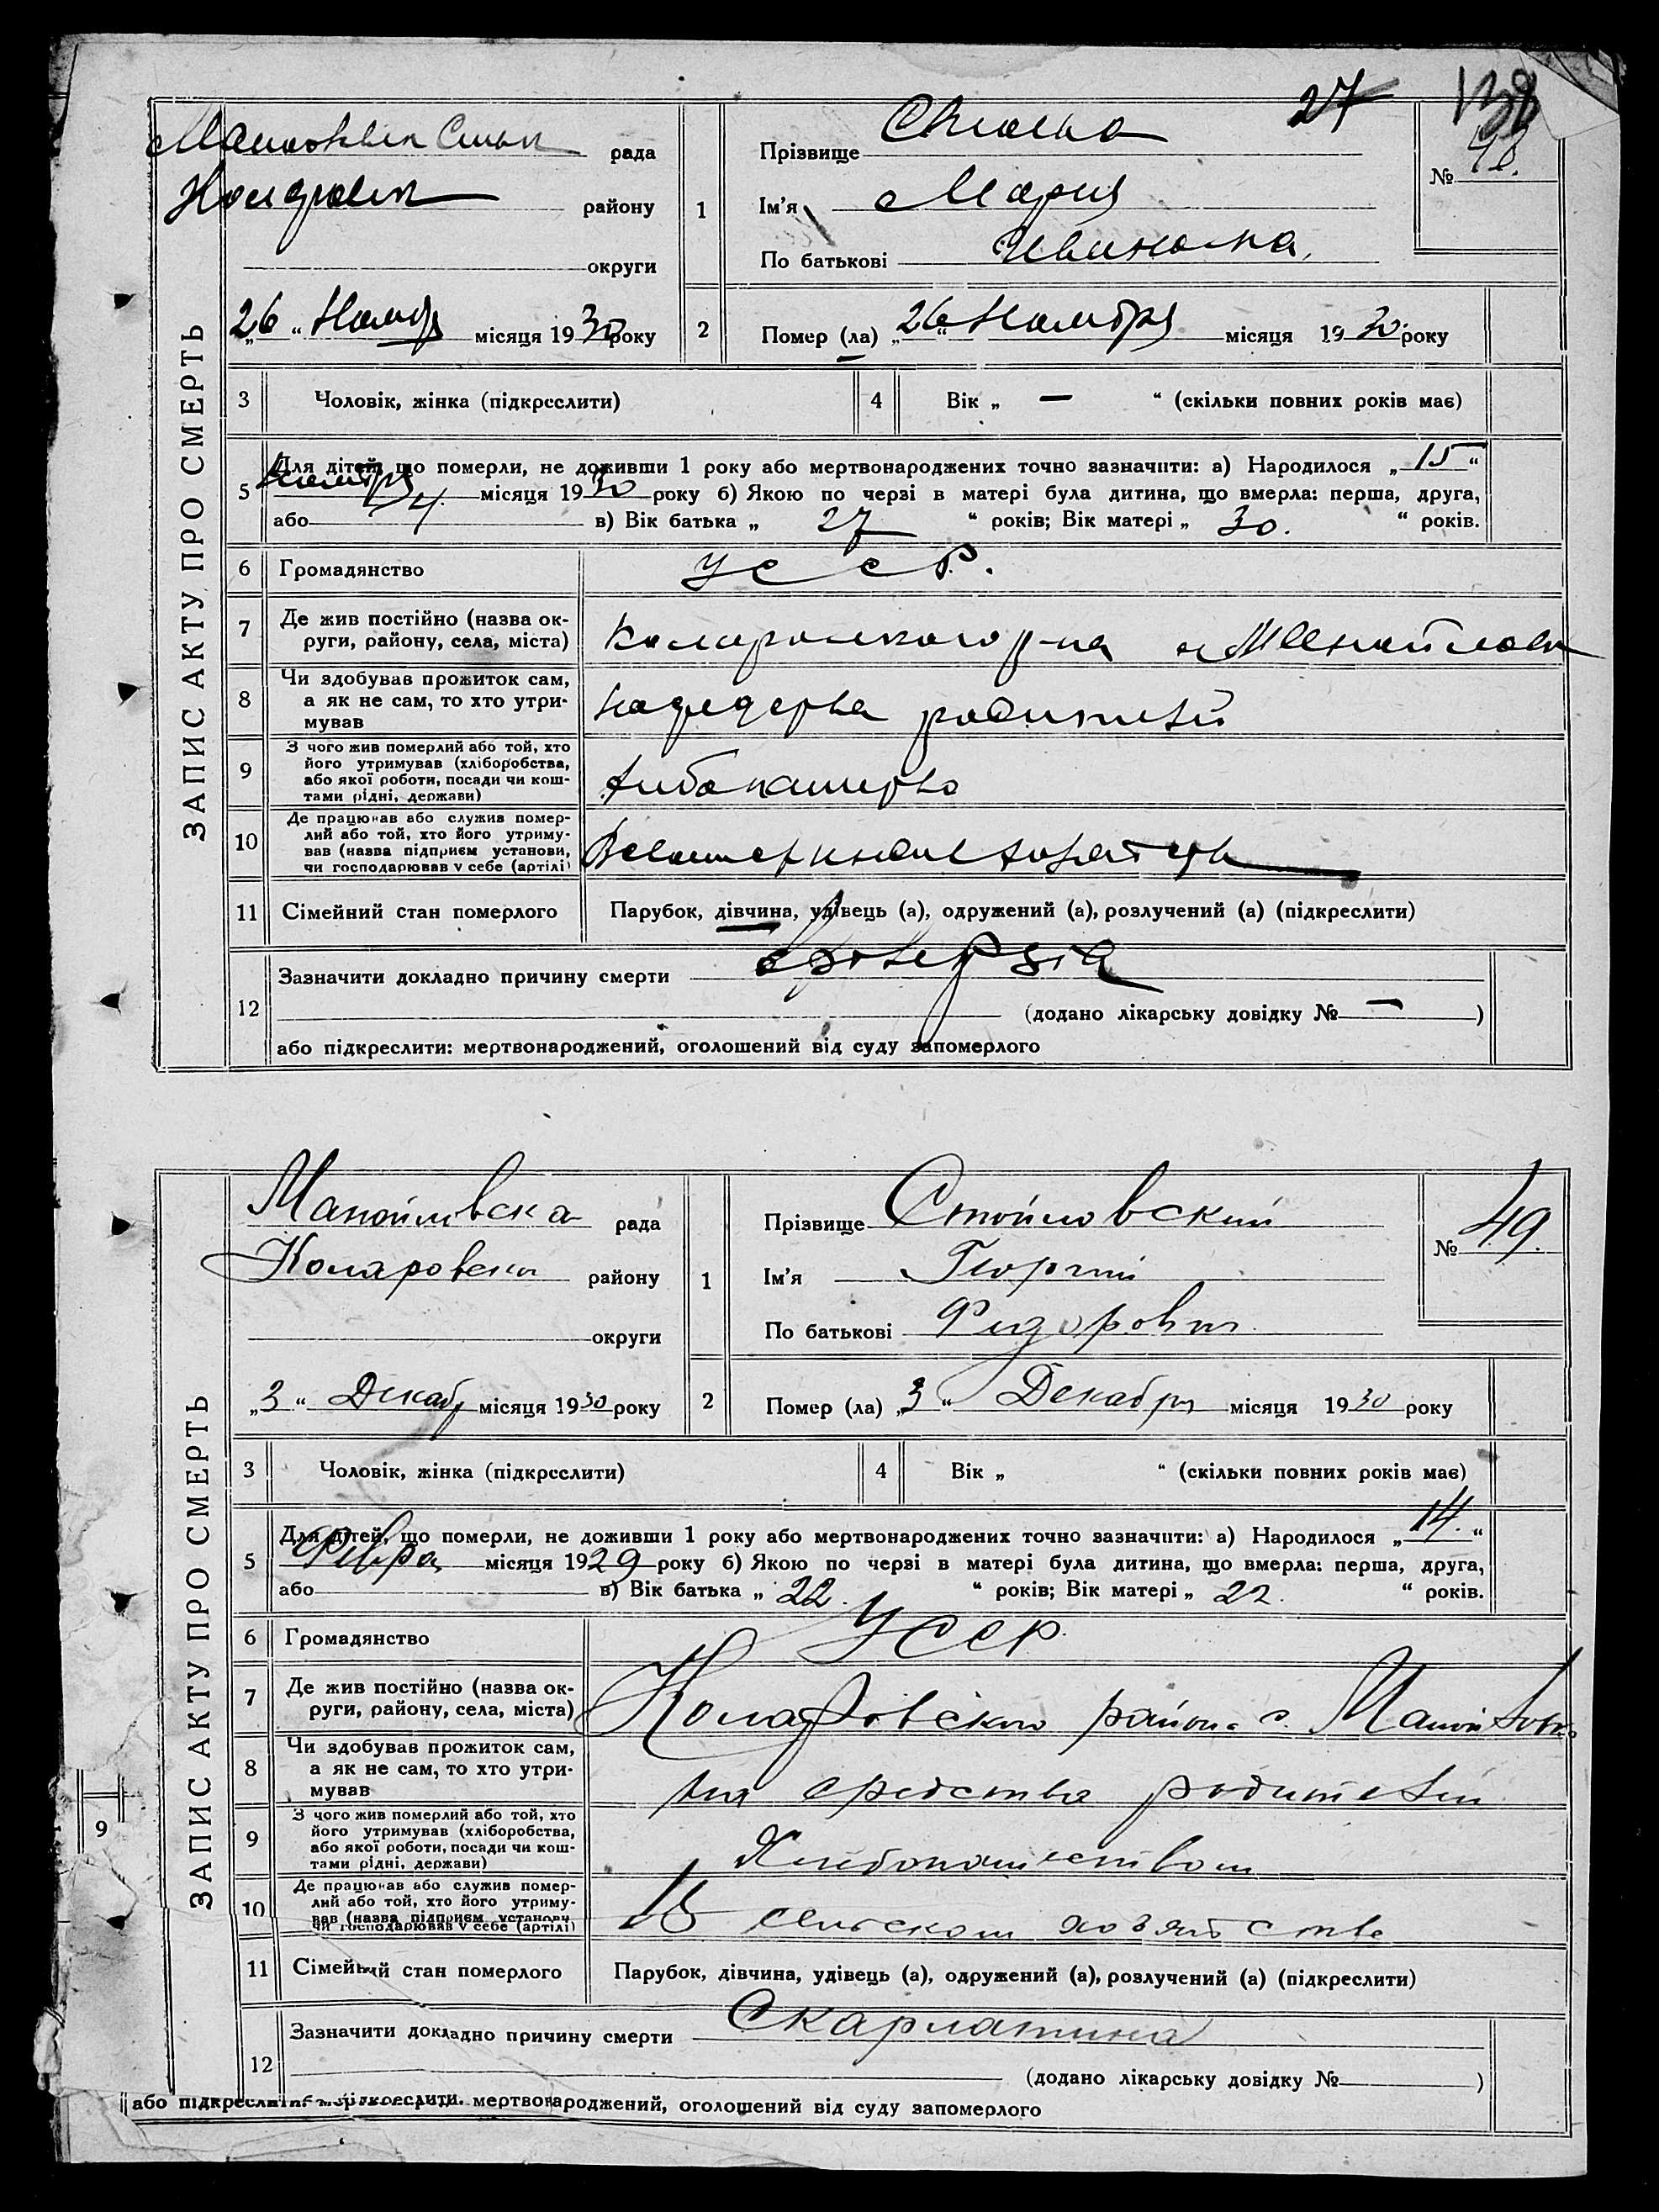 27
138
ЗАПИС АКТУ ПРО СМЕРТЬ
рада
району
округи
26 “ місяця 1930 року
1
Прізвище
Ім'я Мария
По батькові Ивановна
№ 48.
2
Помер (ла) „26“ Ноября місяця 1930. року
3
Чоловік, жінка (підкреслити)
4
Вік „ — “ (скільки повних років має)
5
Для дітей, що померли, не доживши 1 року або мертвонароджених точно зазначити: а) Народилося „15“
місяця 1930 року б) Якою по черзі в матері була дитина, що вмерла: перша, друга,
або 4. в) Вік батька „ 27 “ років; Вік матері „ 30. “ років.
6
Громадянство
УССР.
7
Де жив постійно (назва ок-
руги, району, села, міста)
р-на
8
Чи здобував прожиток сам,
а як не сам, то хто утри-
мував
родителей
9
З чого жив померлий або той, хто
його утримував (хліборобства,
або якої роботи, посади чи кош-
тами рідні, держави)
10
Де працював або служив помер-
лий або той, хто його утриму-
вав (назва підприєм установи,
чи господарював у себе (артілі)
11
Сімейний стан померлого
Парубок, дівчина, удівець (а), одружений (а), розлучений (а) (підкреслити)
12
Зазначити докладно причину смерти
(додано лікарську довідку № — )
або підкреслити: мертвонароджений, оголошений від суду запомерлого
ЗАПИС АКТУ ПРО СМЕРТЬ
Манойлівска рада
Коларовски району
округи
„3“ Декабр місяця 1930 року
1
Прізвище Стойловский
Ім'я Георгий
По батькові Фидорович
№ 49.
2
Помер (ла) „3“ Декабря місяця 1930 року
3
Чоловік, жінка (підкреслити)
4
Вік „ “ (скільки повних років має)
5
Для дітей, що померли, не доживши 1 року або мертвонароджених точно зазначити: а) Народилося „14.“
Февра місяця 1929 року б) Якою по черзі в матері була дитина, що вмерла: перша, друга,
або в) Вік батька „ 22. “ років; Вік матері „ 22. “ років.
6
Громадянство
УССР.
7
Де жив постійно (назва ок-
руги, району, села, міста)
Коларовского района с.
8
Чи здобував прожиток сам,
а як не сам, то хто утри-
мував
на средства родителей
9
9
З чого жив померлий або той, хто
його утримував (хліборобства,
або якої роботи, посади чи кош-
тами рідні, держави)
Хлебопашеством
10
Де працював або служив помер-
лий або той, хто його утриму-
вав (назва підприєм установи,
чи господарював у себе (артілі)
В сельском хозяйстве
11
Сімейний стан померлого
Парубок, дівчина, удівець (а), одружений (а), розлучений (а) (підкреслити)
12
Зазначити докладно причину смерти Скарлатина
(додано лікарську довідку № )
або підкреслити. мертвонароджений, оголошений від суду запомерлого